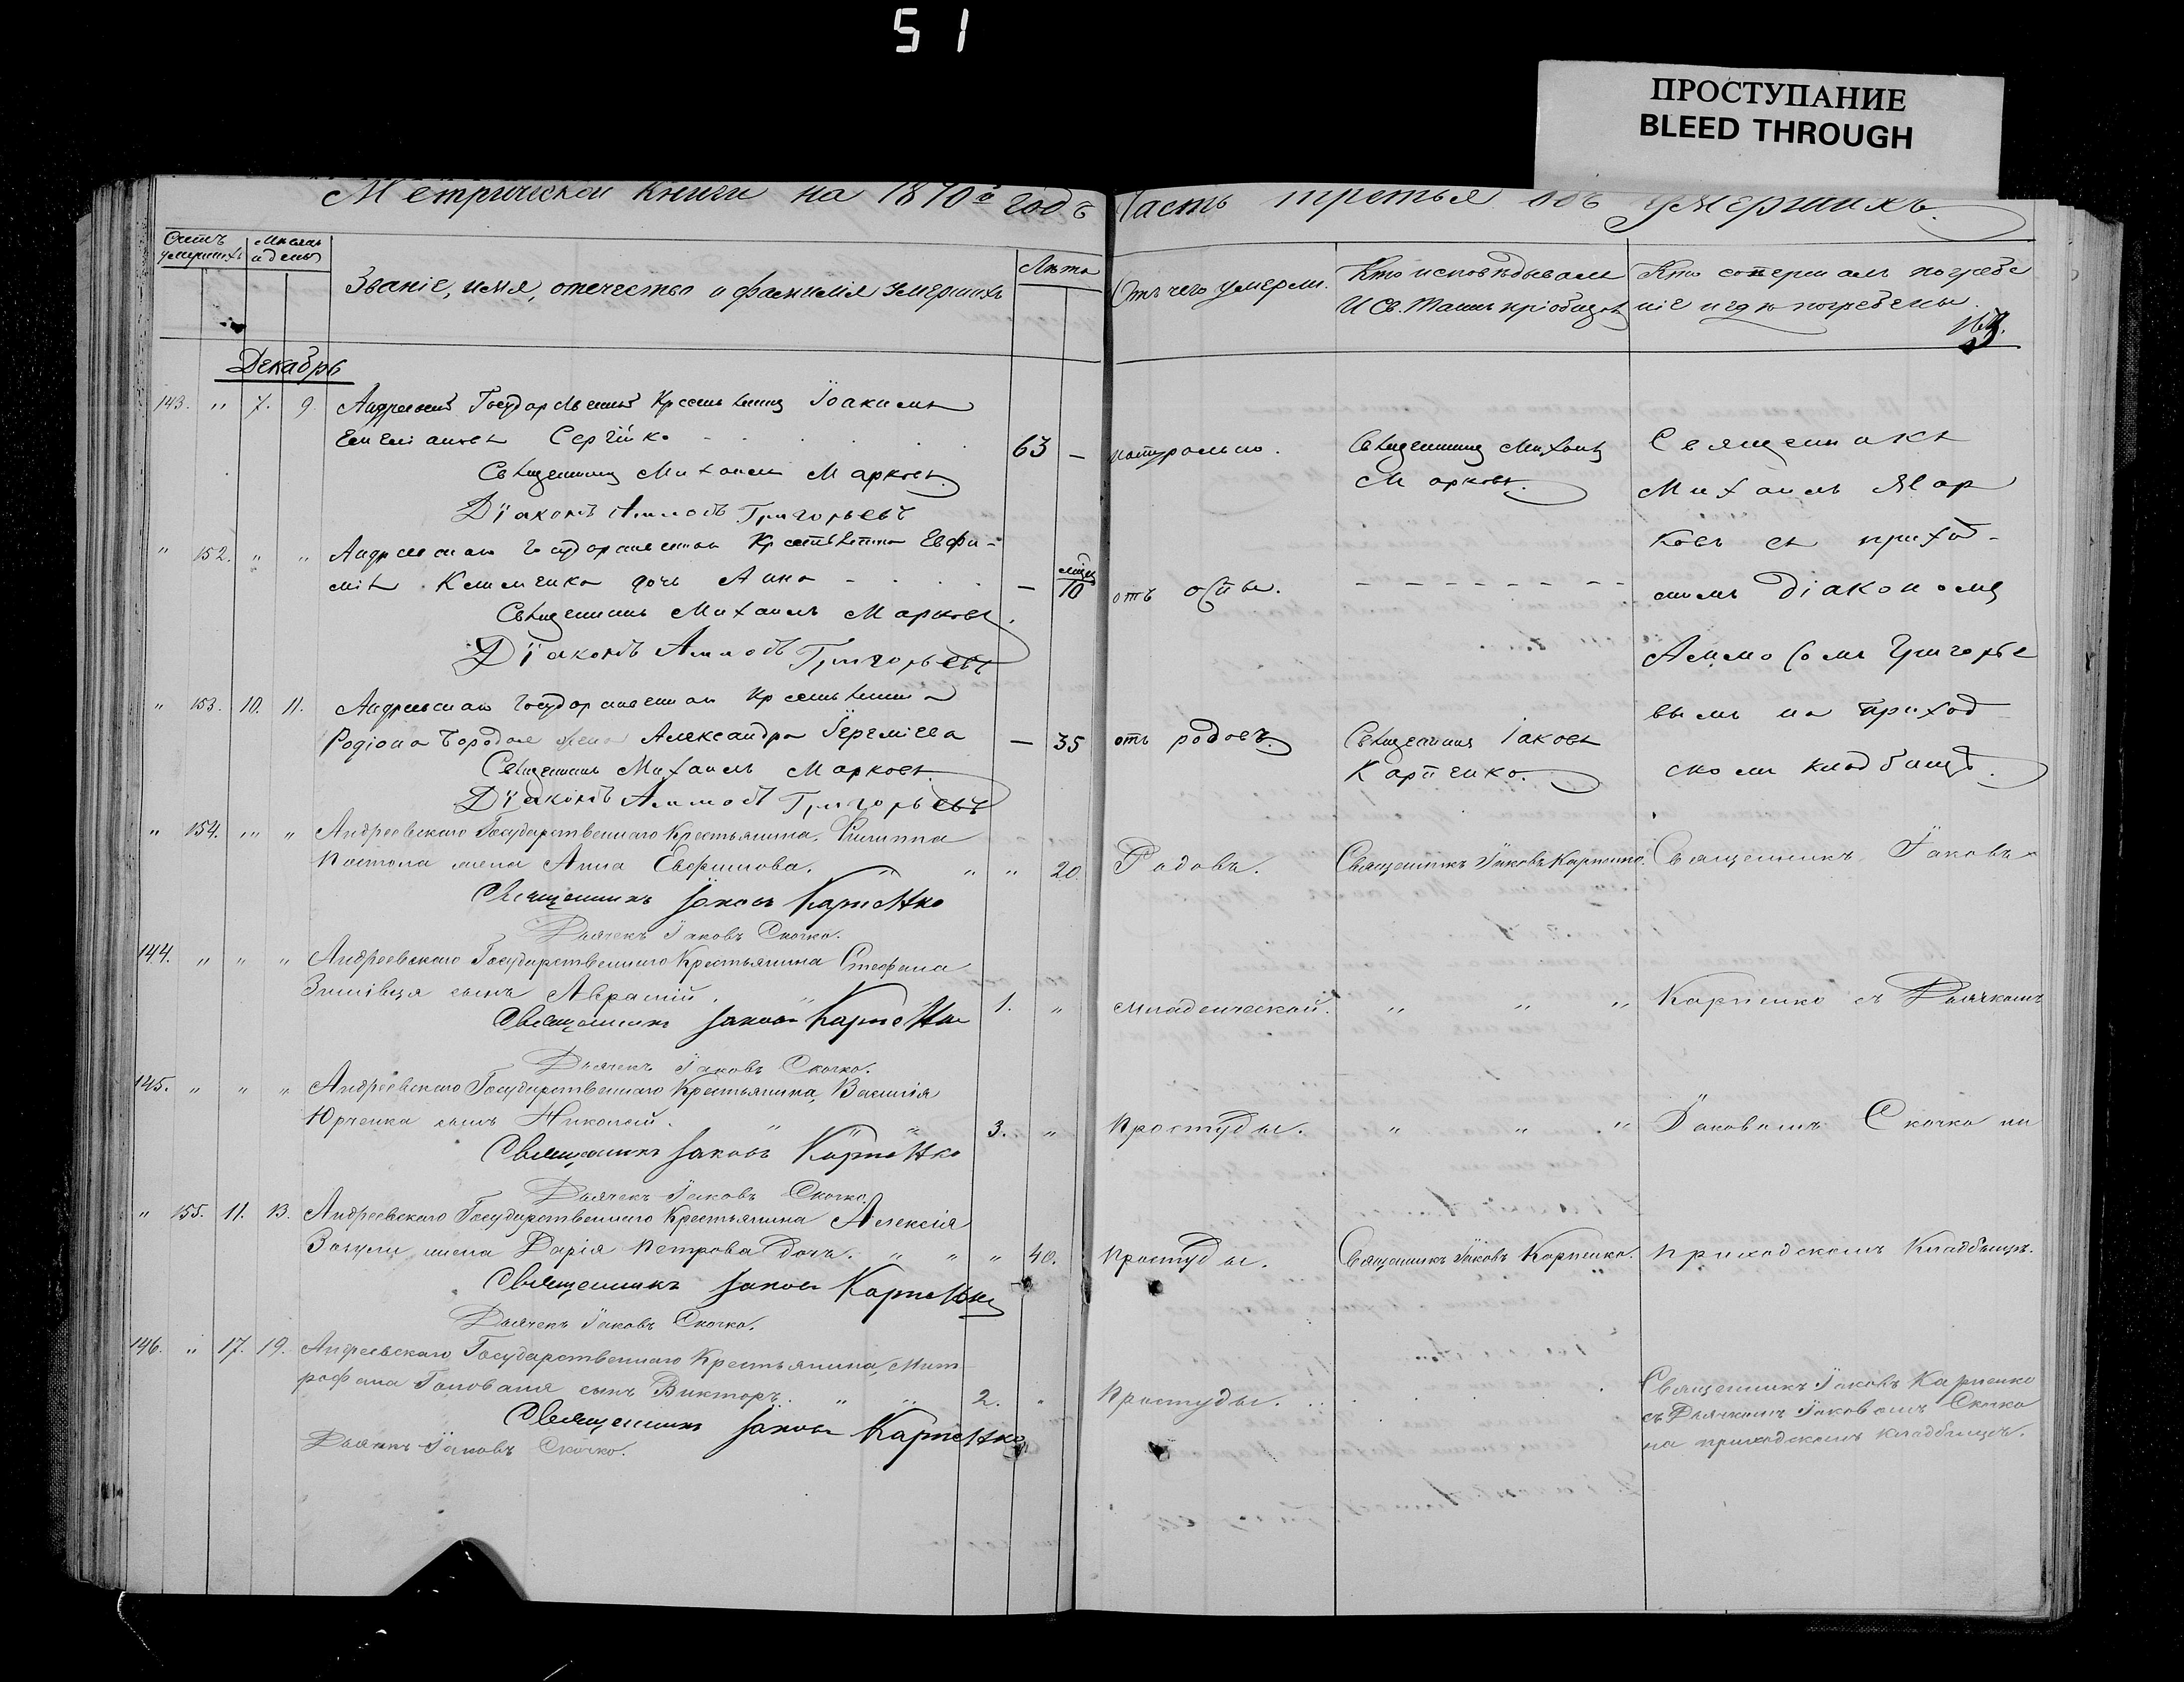 51
ПРОСТУПАНИЕ
BLEED THROUGH
Метрической книги на 1870й годъ Часть третья объ умершихъ.
Счетъ умершихъ
Мѣсяцъ и день
Званіе, имя, отчество и фамилія умершихъ
Лѣта
Отъ чего умерли.
Кто исповѣдывалъ
И Св. Таинъ пріобщалъ
Кто совершалъ погребе
ніе и гдѣ погребены.
Декабрь
143. " 7. 9. Андреевскій Государственный Крестьянинъ Іоакимъ
Емеліановъ Сергійко 63 — натурально. Священникъ Михаилъ Марковъ. Священникъ
Священникъ Михаилъ Марковъ Михаилъ Мар
Діаконъ Аммосъ Григорьевъ
" 152. " " Андреевская государственная Крестьянка Евфи- ковъ съ приход-
мія Клименка дочь Анна — мѣсяц 10 отъ оспы. — — — — — — — нимъ Діакономъ
Священникъ Михаилъ Марковъ.
Діаконъ Аммосъ Григорьевъ Аммосомъ Григорье
" 153. 10. 11. Андреевская государственная Крестьянина вымъ на приход
Родіона Бородая жена Александра Іереміева — 35 отъ родовъ. Священникъ Іаковъ Карпенко. скомъ кладбищѣ.
Священникъ Михаилъ Марковъ.
Діаконъ Аммосъ Григорьевъ
" 154. " " Андреевскаго Государственнаго Крестьянина, Филиппа
Постола жена Анна Евфимова. " " " 20. Родовъ. Священникъ Іаковъ Карпенко. Священникъ Іаковъ
Священникъ Іаковъ Карпенко
Дьячекъ Іаковъ Скочко.
144. " " " Андреевскаго Государственнаго Крестьянина Стефана
сынъ Авраамій. " 1. " младенческой. " " " Карпенко съ Дьячкомъ
Священникъ Іаковъ Карпенко
Дьячекъ Іаковъ Скочко.
145. " " " Андреевскаго Государственнаго Крестьянина, Василія
Юрченка сынъ Николай. " " " 3. " Простуды. " " " Іаковомъ Скочко на
Священникъ Іаковъ Карпенко
Дьячекъ Іаковъ Скочко.
" 155. 11. 13. Андреевскаго Государственнаго Крестьянина Алексія
жена Дарія Петрова дочь. " " " 40. Простуды. Священникъ Іаковъ Карпенко. приходскомъ Кладбищѣ.
Священникъ Іаковъ Карпенко
Дьячекъ Іаковъ Скочко.
146. " 17. 19. Андреевскаго Государственнаго Крестьянина, Мит
рофана Голованя сынъ Викторъ. " " 2. " Простуды. Священникъ Іаковъ Карпенко
Священникъ Іаковъ Карпенко съ Дьячкомъ Іаковомъ Скочко
Дьячекъ Іаковъ Скочко. на приходскомъ кладбищѣ.